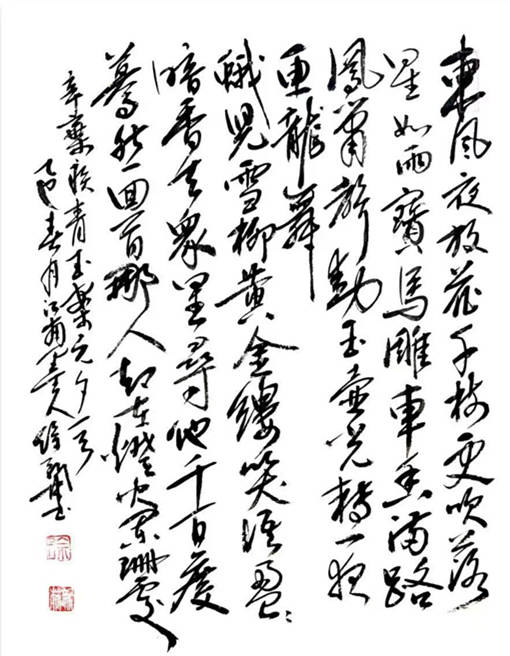 東風夜放花千樹更吹落
星如雨寶馬雕車香滿路
鳳簫聲動玉壺光轉一夜
魚龍舞
蛾兒雪柳黃金縷笑語盈盈
暗香去眾里尋他千百度
驀然回首那人卻在燈火闌珊處
辛棄疾青玉案元夕一首
乙巳春月江南人書